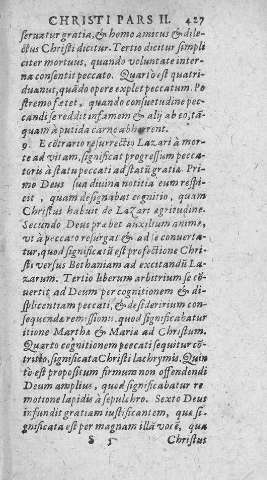 CHRISTI PARS II. 427
seruatur gratia, & homo amicus & dile-
ctus Christi dicitur. Tertio dicitur simpli
citer mortuus, quando voluntate inter-
na consentit peccato. Quarto est quatri-
duanus, quãdo opere explet peccatum. Po
stremo fœtet, quando consuetudine pec-
candi se reddit infamem & alij ab eo, tã-
quam à putida carne abhorrent.
9. E cõtrario resurrectio Lazari à mor-
te ad vitam, significat progressum pecca-
toris à statu peccati ad statũ gratiæ. Pri-
mo Deus sua diuina notitia eum respi-
cit, quam designabat cognitio, quam
Christus habuit de Lazari ægritudine.
Secundo Deus præbet auxilium animæ,
vt à peccato resurgat & ad se conuerta-
tur, quod significatũ est profectione Chri-
sti versus Bethaniam ad excitandũ La-
zarum. Tertio liberum arbitrium se cõ-
uertit ad Deum per cognitionem & di-
splicentiam peccati, & desiderium con-
sequendæ remissionis. quod significabatur
itione Marthæ & Mariæ ad Christum.
Quarto cognitionem peccati sequitur cõ-
tritio, significata Christi lachrymis. Quin
tò est propositum firmum non offendendi
Deum amplius, quod significabatur re-
motione lapidis à sepulchro. Sexto Deus
infundit gratiam iustificantem, quæ si-
gnificata est per magnam illã vocē, qua
S 5 Christus